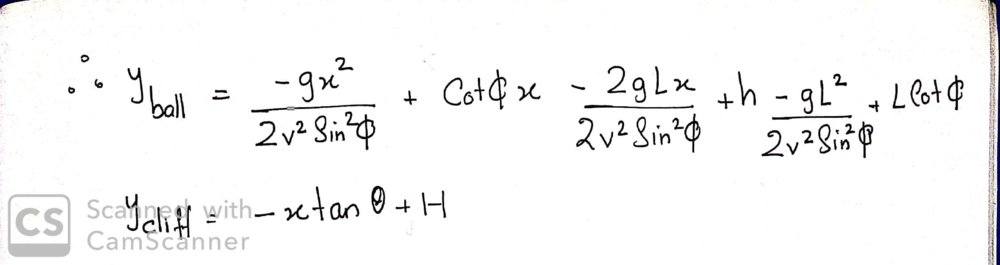 ∴ y_ball = -gx²/(2v² Sin²φ) + Cotφ x - 2gLx/(2v² Sin²φ) + h - gL²/(2v² Sin²φ) + L Cotφ
y_cliff = -x tan θ + H
CS Scanned with CamScanner